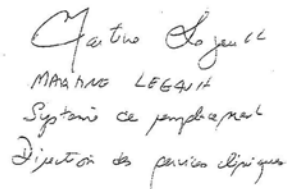 MARTINE LEGAULT
Système de remplacement
Direction des services cliniques